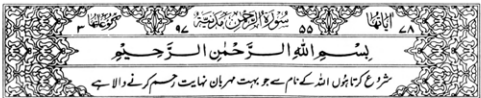 اٰیاتها ۷۸ ۵۵ سُوْرَةُ الرَّحْمٰن مَدَنِيَّة ۹۷ رکوعاتها ۳
بِسْمِ اللّٰهِ الرَّحْمٰنِ الرَّحِيْمِ
شروع کرتا ہوں اللہ کے نام سے جو بہت مہربان نہایت رحم کرنے والا ہے